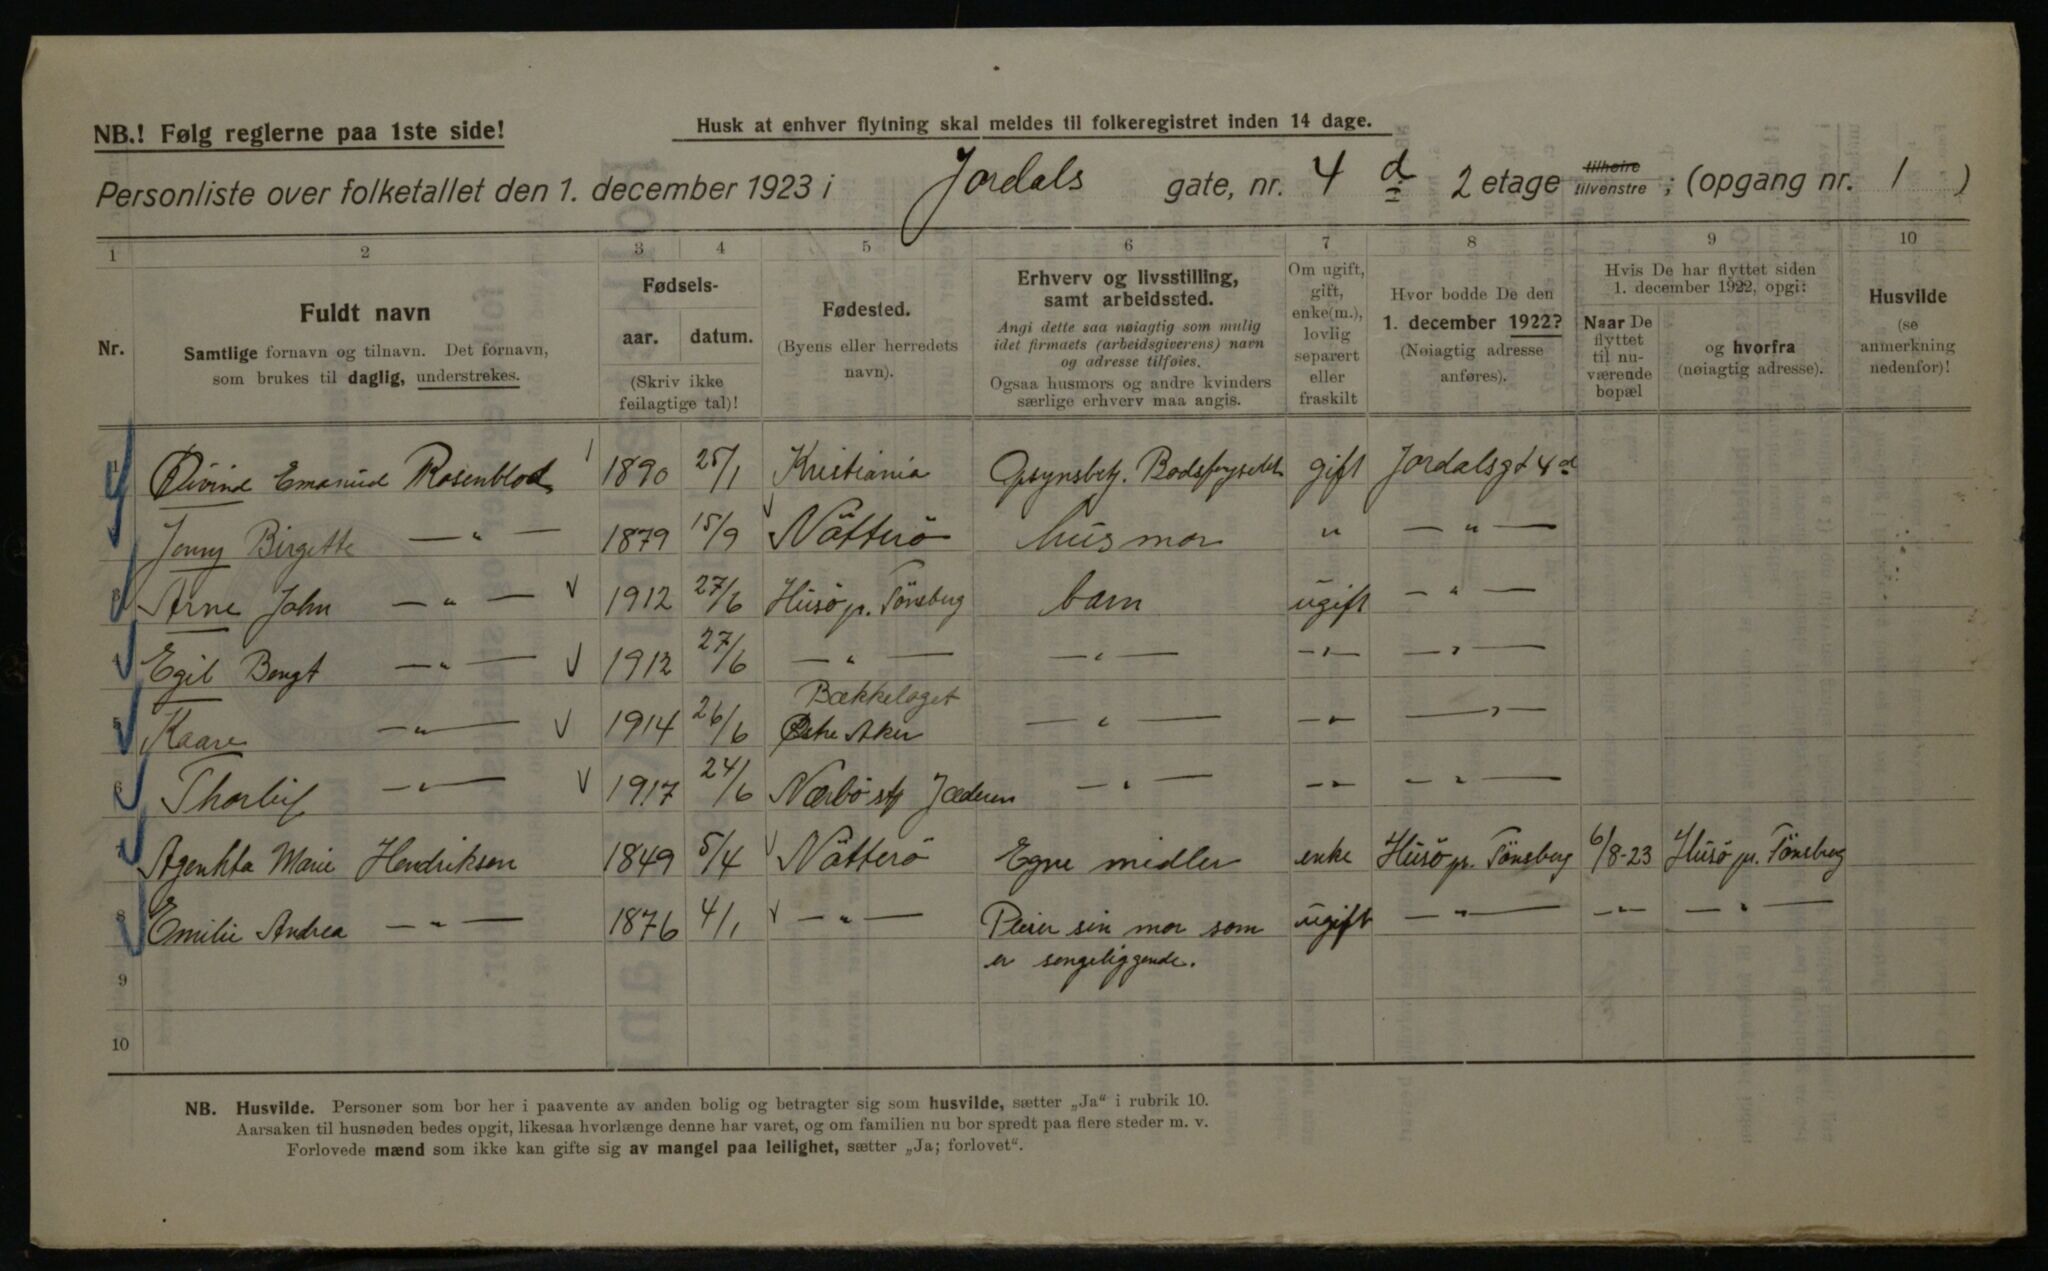 NB.! Følg reglerne paa 1ste side!
Husk at enhver flytning skal meldes til folkeregistret inden 14 dage.
Personliste over folketallet den 1. december 1923 i Jordals gate, nr. 4 d 2 etage tilhøire tilvenstre ; (opgang nr. 1 )
1 2 3 4 5 6 7 8 9 10
Nr.
Fuldt navn
Samtlige fornavn og tilnavn. Det fornavn,
som brukes til daglig, understrekes.
Fødsels-
aar. datum.
(Skriv ikke
feilagtige tal)!
Fødested.
(Byens eller herredets
navn).
Erhverv og livsstilling,
samt arbeidssted.
Angi dette saa nøiagtig som mulig
idet firmaets (arbeidsgiverens) navn
og adresse tilføies.
Ogsaa husmors og andre kvinders
særlige erhverv maa angis.
Om ugift,
gift,
enke(m.),
lovlig
separert
eller
fraskilt
Hvor bodde De den
1. december 1922?
(Nøiagtig adresse
anføres).
Hvis De har flyttet siden
1. december 1922, opgi:
Naar De
flyttet
til nu-
værende
bopæl
og hvorfra
(nøiagtig adresse).
Husvilde
(se
anmerkning
nedenfor)!
1 Øivind Emanuel Rosenblad 1890 25/1 Kristiania Opsynsbetj. gift Jordalsgt 4 d
2 Jenny Birgette — " — 1879 15/9 Nötterö husmor " — " —
3 Arne John — " — 1912 27/6 Husö pr. Tönsberg barn ugift — " —
4 Egil Bengt — " — 1912 27/6 — " — — " — — " — — " —
5 Kaare — " — 1914 26/6 Bækkelaget
Østre Aker — " — — " — — " —
6 Thorleif — " — 1917 24/6 Nærbö st Jæderen — " — — " — — " —
7 Agenhta Marie Hendriksen 1849 5/4 Nötterö Egne midler enke Husö pr. Tönsberg 6/8-23 Husö pr. Tönsberg
8 Emilie Andrea — " — 1876 4/1 — " — Pleier sin mor som ugift — " — — " — — " —
er sengeliggende.
9
10
NB. Husvilde. Personer som bor her i paavente av anden bolig og betragter sig som husvilde, sætter „Ja“ i rubrik 10.
Aarsaken til husnøden bedes opgit, likesaa hvorlænge denne har varet, og om familien nu bor spredt paa flere steder m. v.
Forlovede mænd som ikke kan gifte sig av mangel paa leilighet, sætter „Ja; forlovet“.